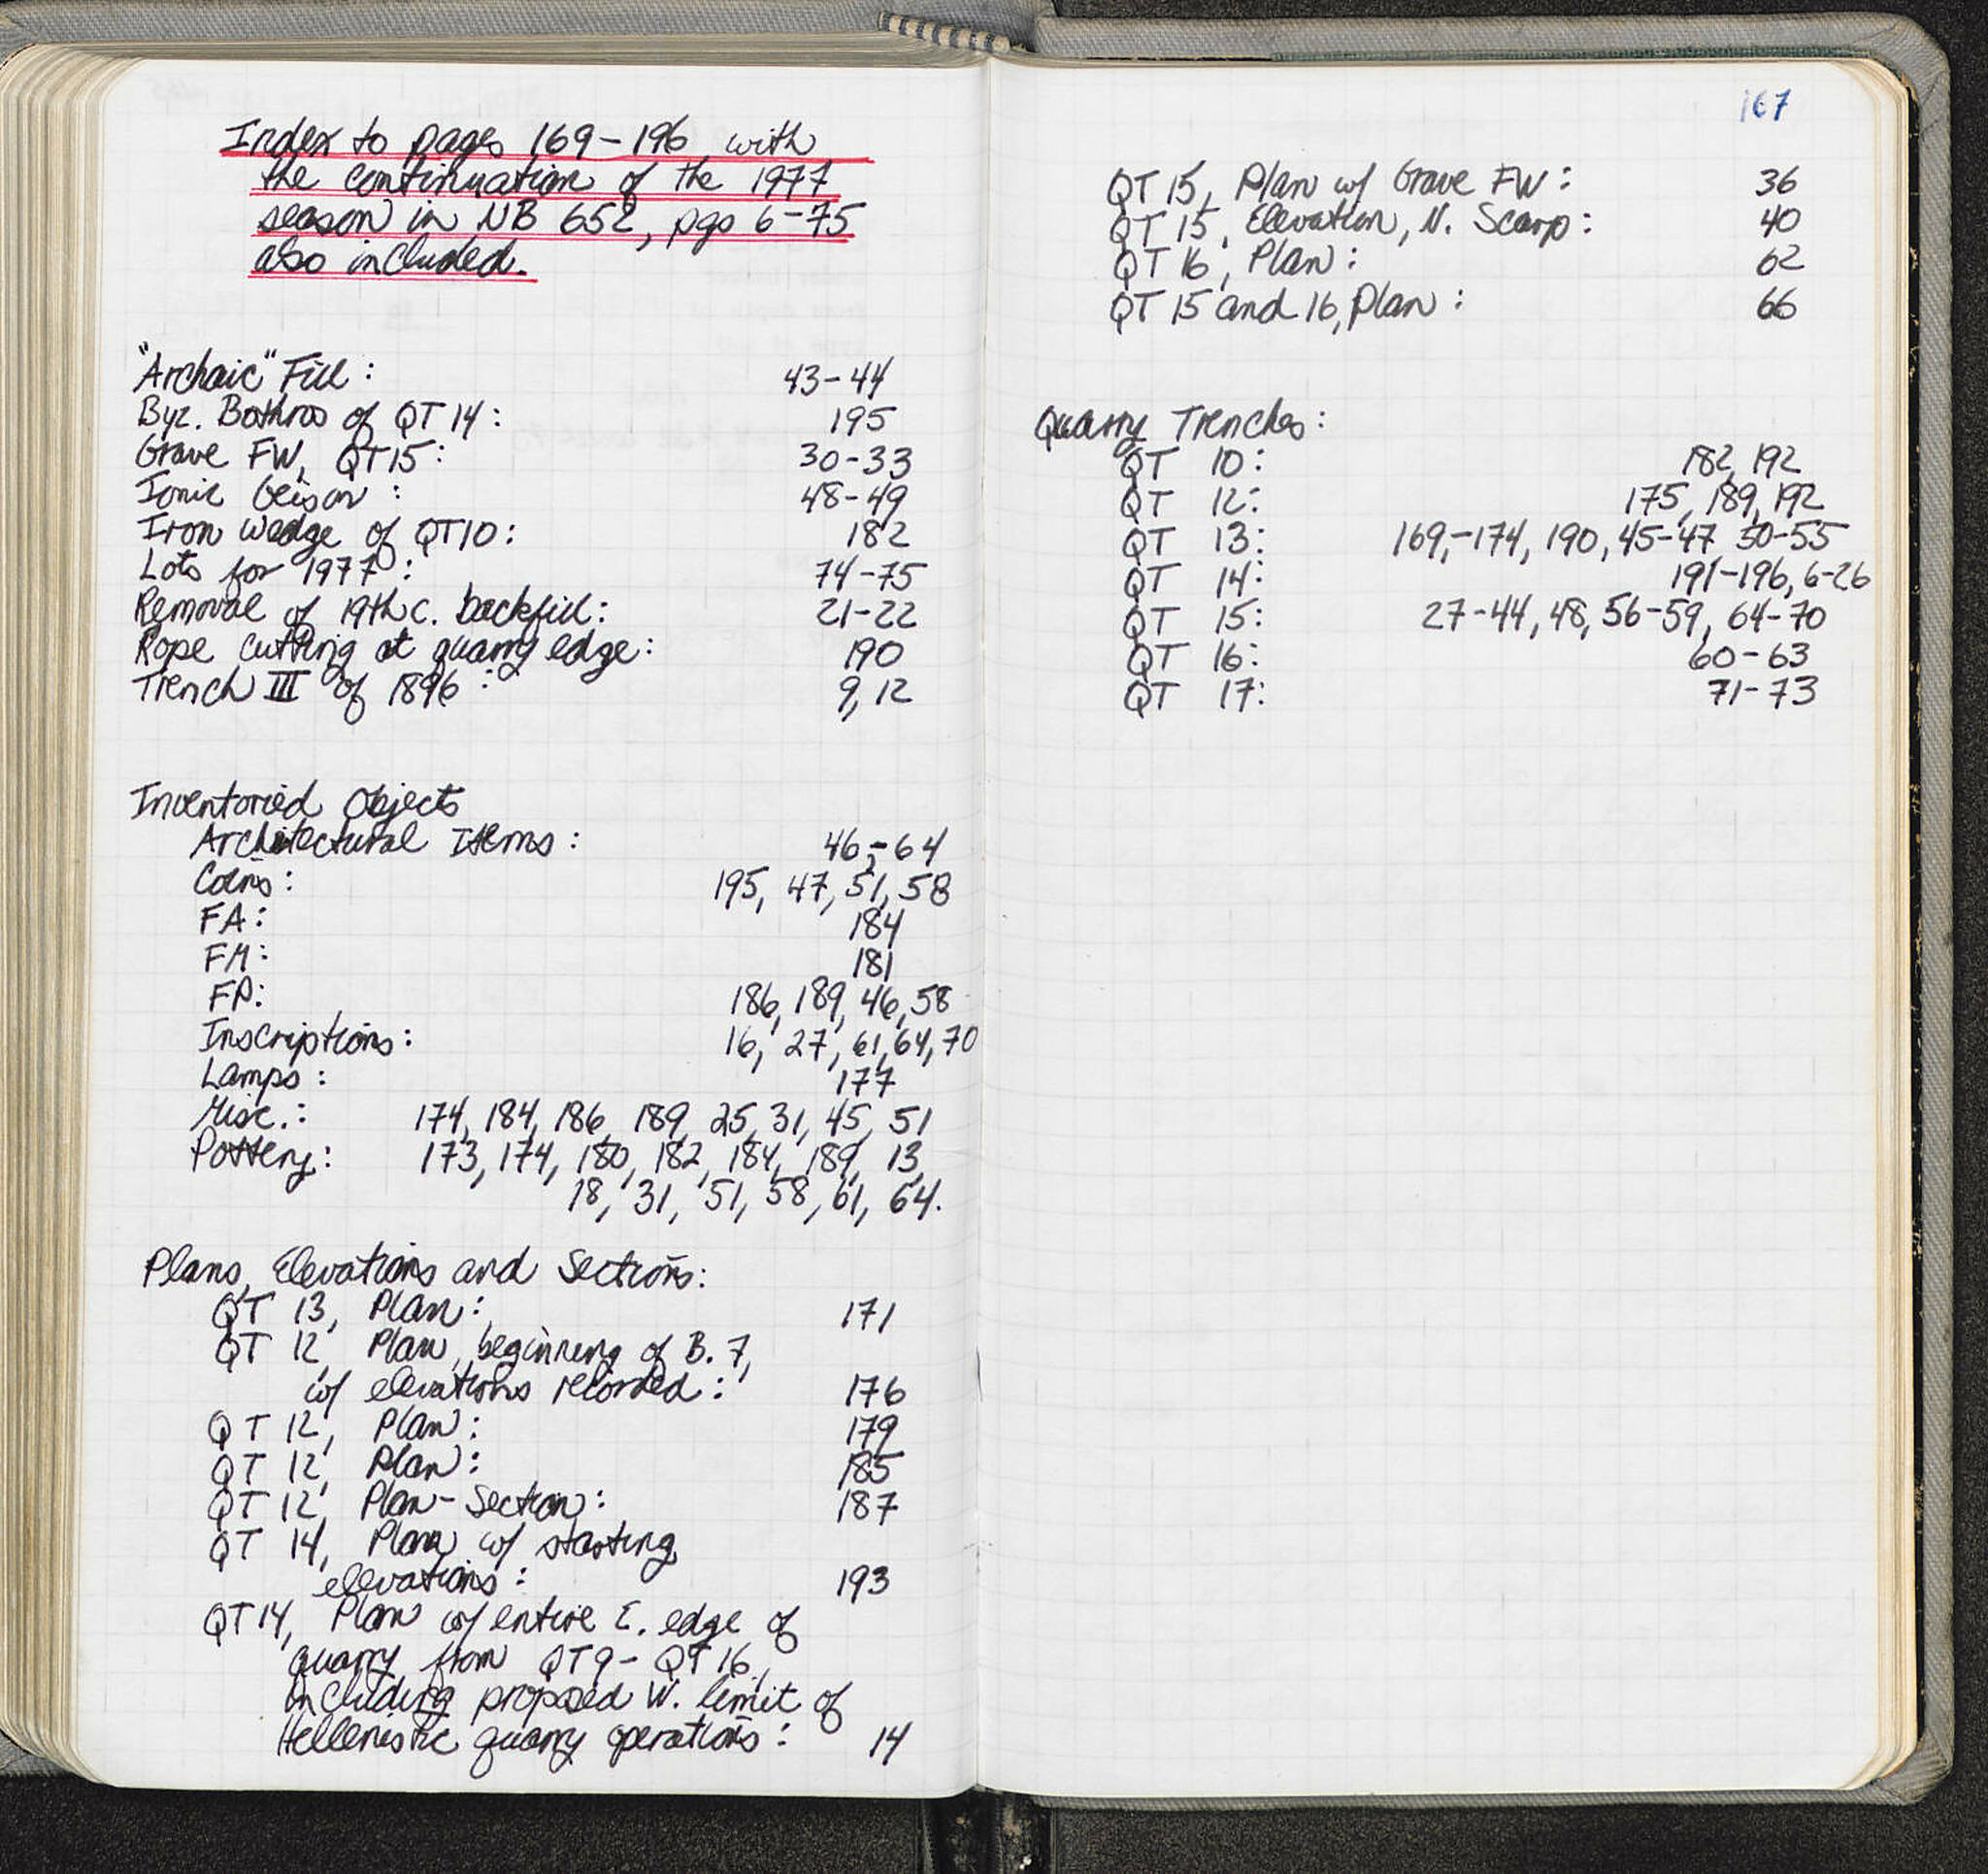 Index to pages 169-196 with
the continuation of the 1977
season in NB 652, pgs 6-75
also included.
"Archaic" Fill: 43-44
Byz. Bothros of QT 14: 195
Grave FW, QT15: 30-33
Ionic Geison: 48-49
Iron wedge of QT10: 182
Lots for 1977: 74-75
Removal of 19th c. backfill: 21-22
Rope cutting at quarry edge: 190
Trench III of 1896: 9, 12
Inventoried Objects
Architectural Items: 46-64
Coins: 195, 47, 51, 58
FA: 184
FM: 181
FP: 186, 189, 46, 58
Inscriptions: 16, 27, 61, 64, 70
Lamps: 177
Misc.: 174, 184, 186, 189, 25, 31, 45, 51
Pottery: 173, 174, 180, 182, 184, 189, 13,
18, 31, 51, 58, 61, 64.
Plans, Elevations and Sections:
QT 13, Plan: 171
QT 12, Plan, beginning of B. 7,
w/ elevations recorded: 176
QT 12, Plan: 179
QT 12, Plan: 185
QT 12, Plan-Section: 187
QT 14, Plan w/ starting
elevations: 193
QT 14, Plan w/ entire E. edge of
quarry from QT9-QT16,
including proposed W. limit of
Hellenistic quarry operations: 14
167
QT 15, Plan w/ Grave FW: 36
QT 15, Elevation, N. Scarp: 40
QT 16, Plan: 62
QT 15 and 16, Plan: 66
Quarry Trenches:
QT 10: 182, 192
QT 12: 175, 189, 192
QT 13: 169,-174, 190, 45-47 50-55
QT 14: 191-196, 6-26
QT 15: 27-44, 48, 56-59, 64-70
QT 16: 60-63
QT 17: 71-73